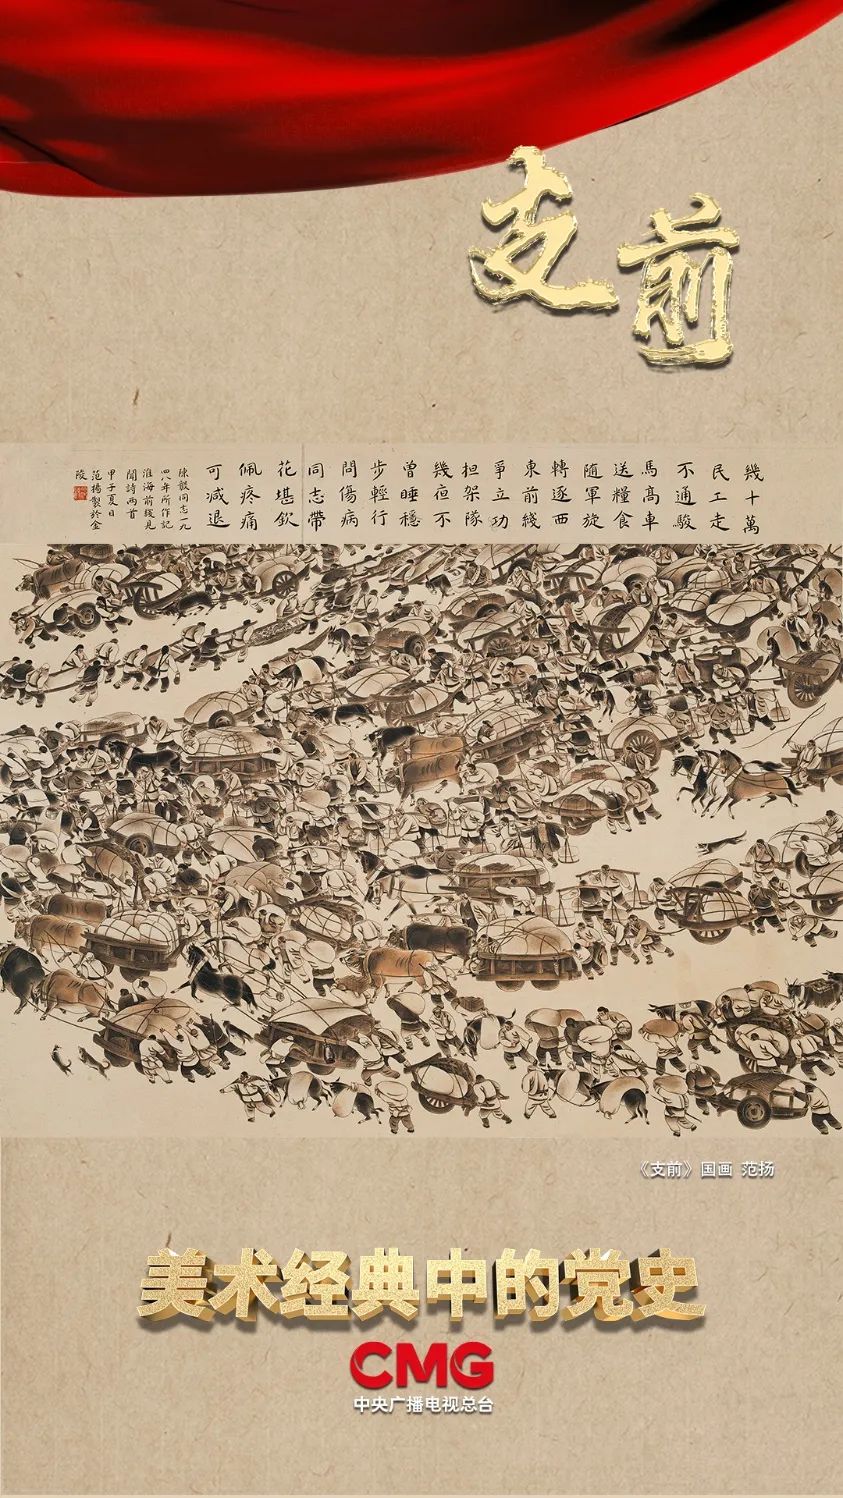 支前
幾十萬
民工走
不通駿
馬髙車
送糧食
隨軍旋
轉逐西
東前綫
爭立功
担架隊
幾夜不
曾睡穩
步輕行
問傷病
同志帶
花堪欽
佩疼痛
可減退
陳毅同志一九
四八年所作記
淮海前綫見
聞詩兩首
甲子夏日
范揚製於金
陵
《支前》国画 范扬
美术经典中的党史
CMG
中央广播电视总台